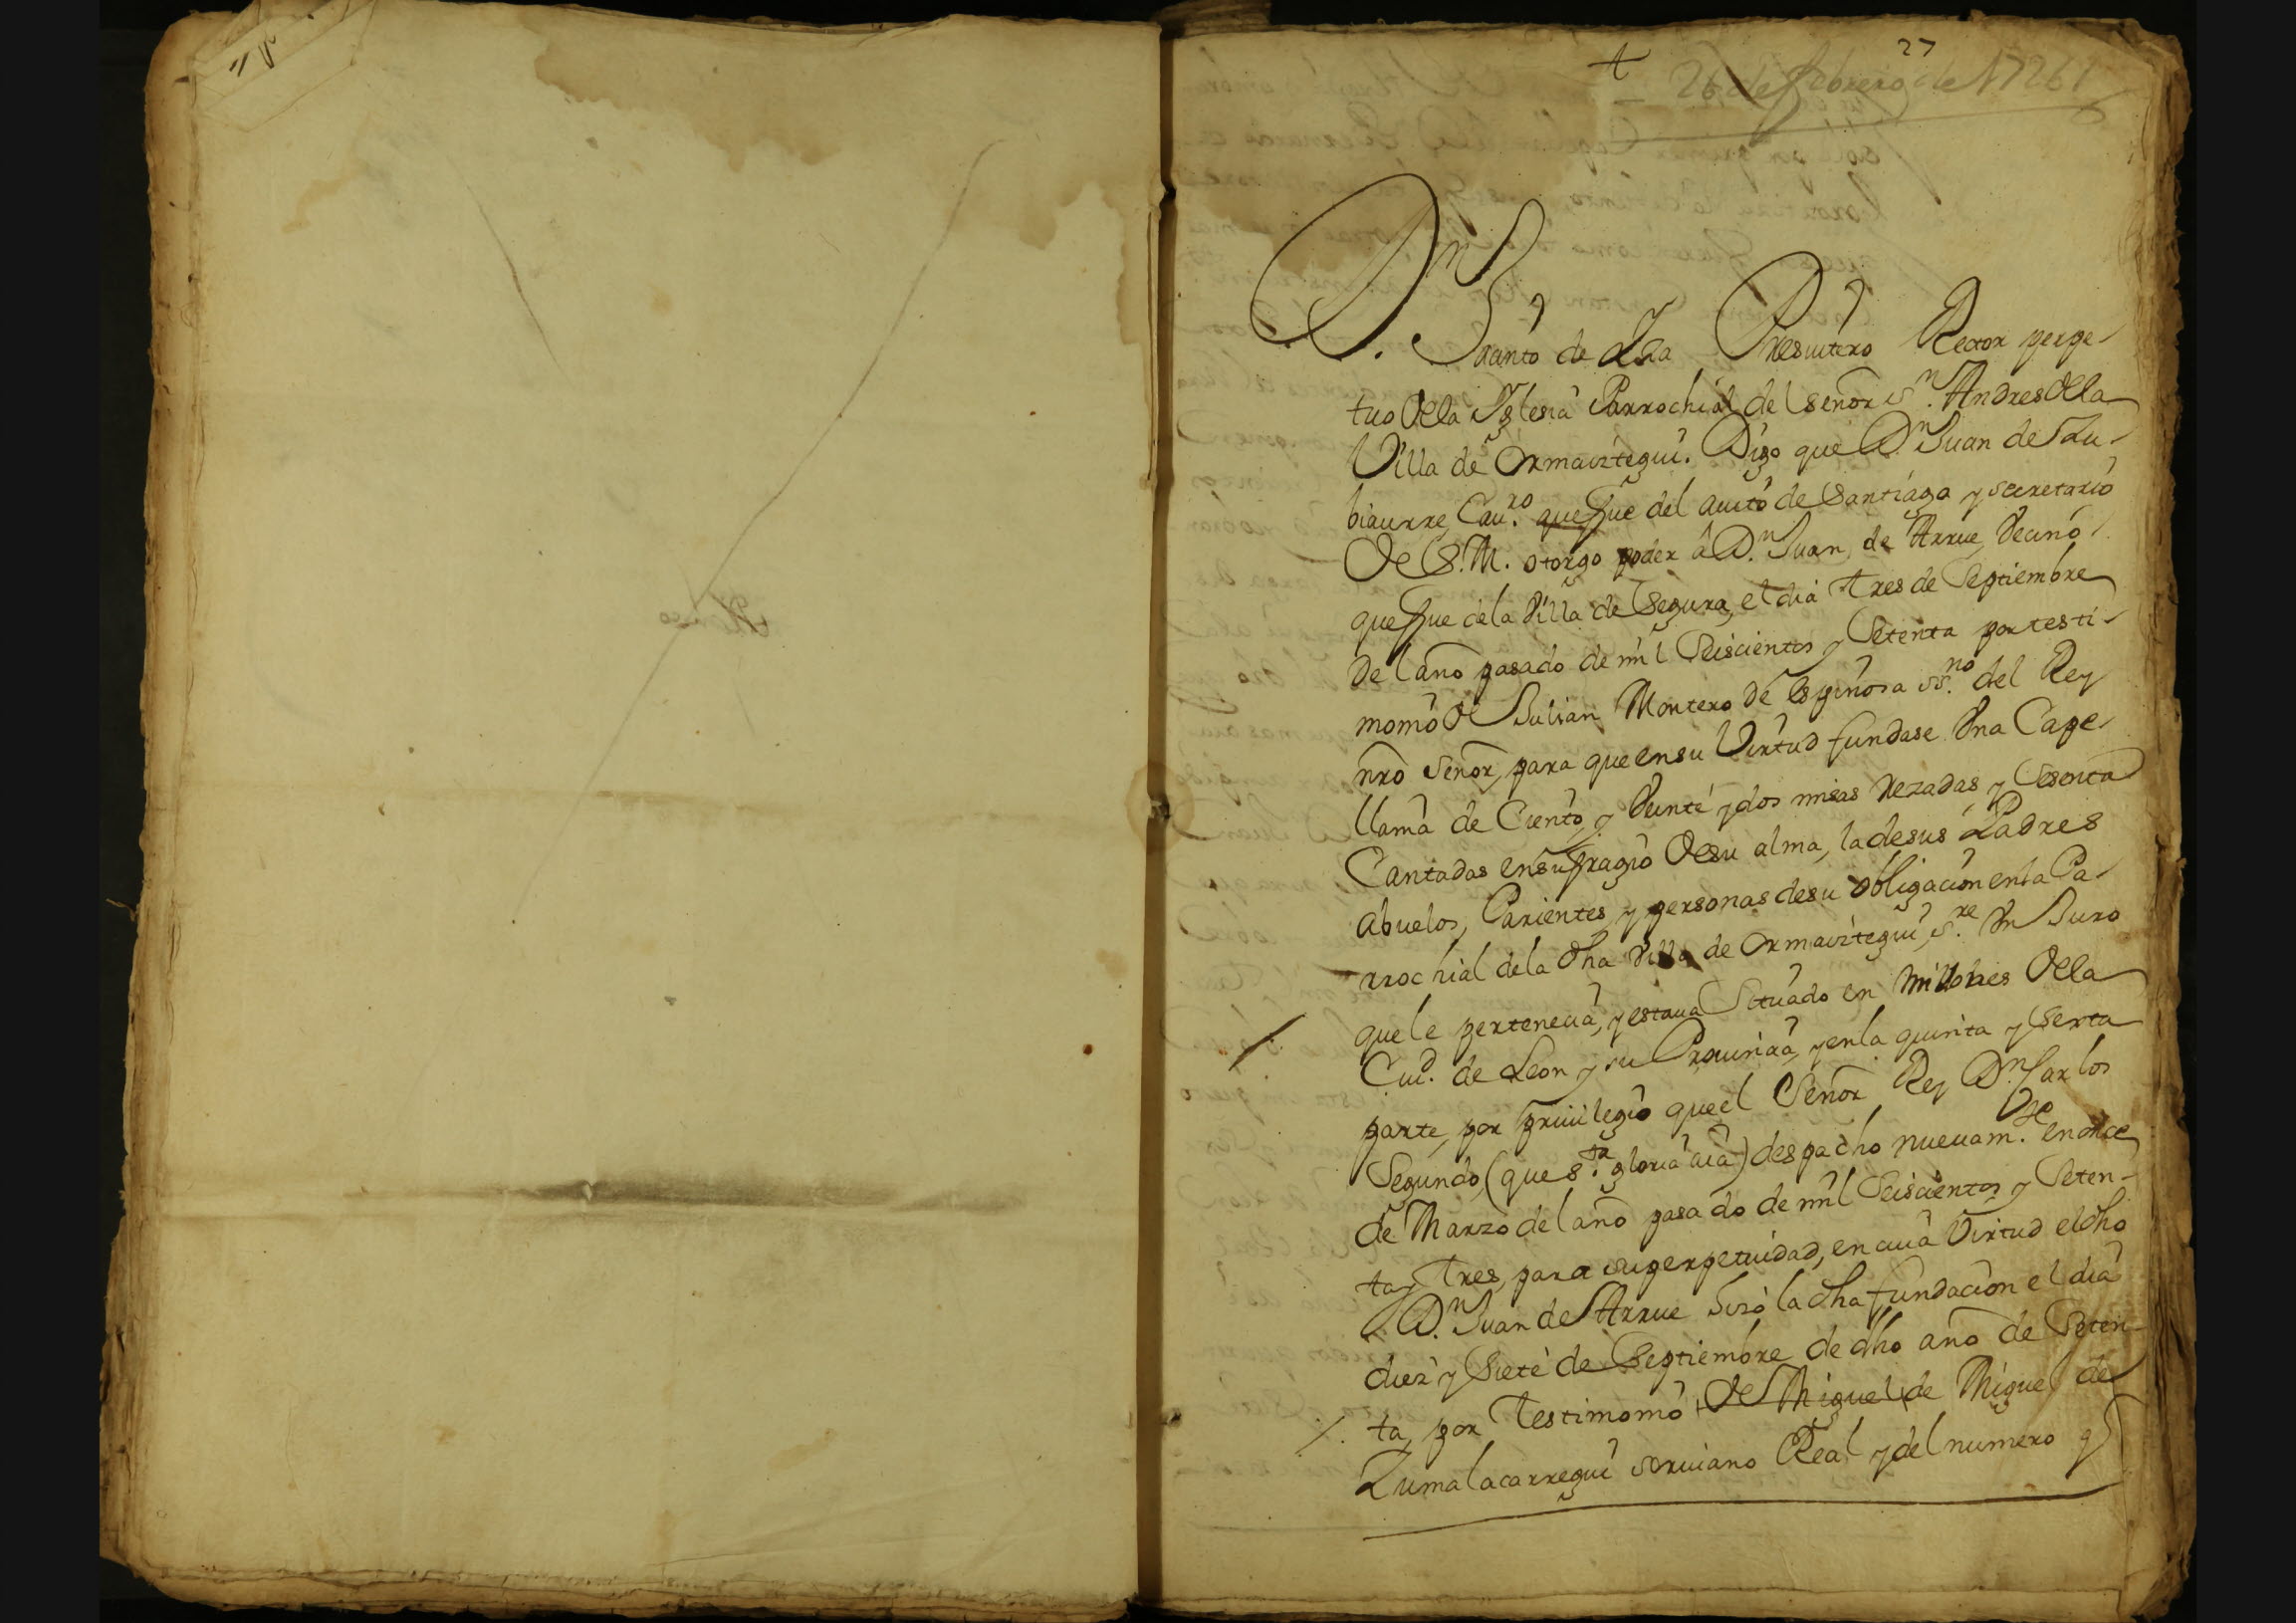 27
26 de febrero de 1726
Dn Santo de Lza Presuitero Rector perpe-
tuo de la Yglesia Parrochial del señor Sn. Andres de la
Villa de Ormaiztegui. Digo que Dn. Juan de Zu-
biaurre, Cauro. que fue del auito de Santiago y secretario
de S. M. otorgo poder â Dn. Juan de Arrue, Vecino
que fue de la Villa de Segura, el dia tres de Septiembre
del año pasado de mil Seiscientos y Setenta por testi-
monio de Julian Montero de Espinosa ssno. del Rey
nro señor, para que en su Virtud fundase Vna Cape-
llania de Ciento y Veinte y dos misas rezadas y Sesenta
Cantadas en sufragio de su alma, la de sus Padres
abuelos, Parientes, y personas de su obligacion en la Pa-
rrochial de la dha Villa de Ormaiztegui, sre. Vn Juro
que le pertenecia, y estaua Situado en Millones de la
Ciud. de Leon y su Prouincia, y en la quinta y Sexta
parte, por priuilegio que el Señor Rey Dn. Carlos
Segundo, (que sta. gloria aia) despacho nueuamte. en once
de Marzo del año pasado de mil Seiscientos y Seten-
ta y Tres, para su perpetuidad, en cuia Virtud el dho
Dn. Juan de Arrue hizo la dha fundacion el dia
diez y Siete de Septiembre de dho año de Seten-
ta, por Testimonio de Miguel de Miguel de
Zumalacarregui scriuano Real y del numero q